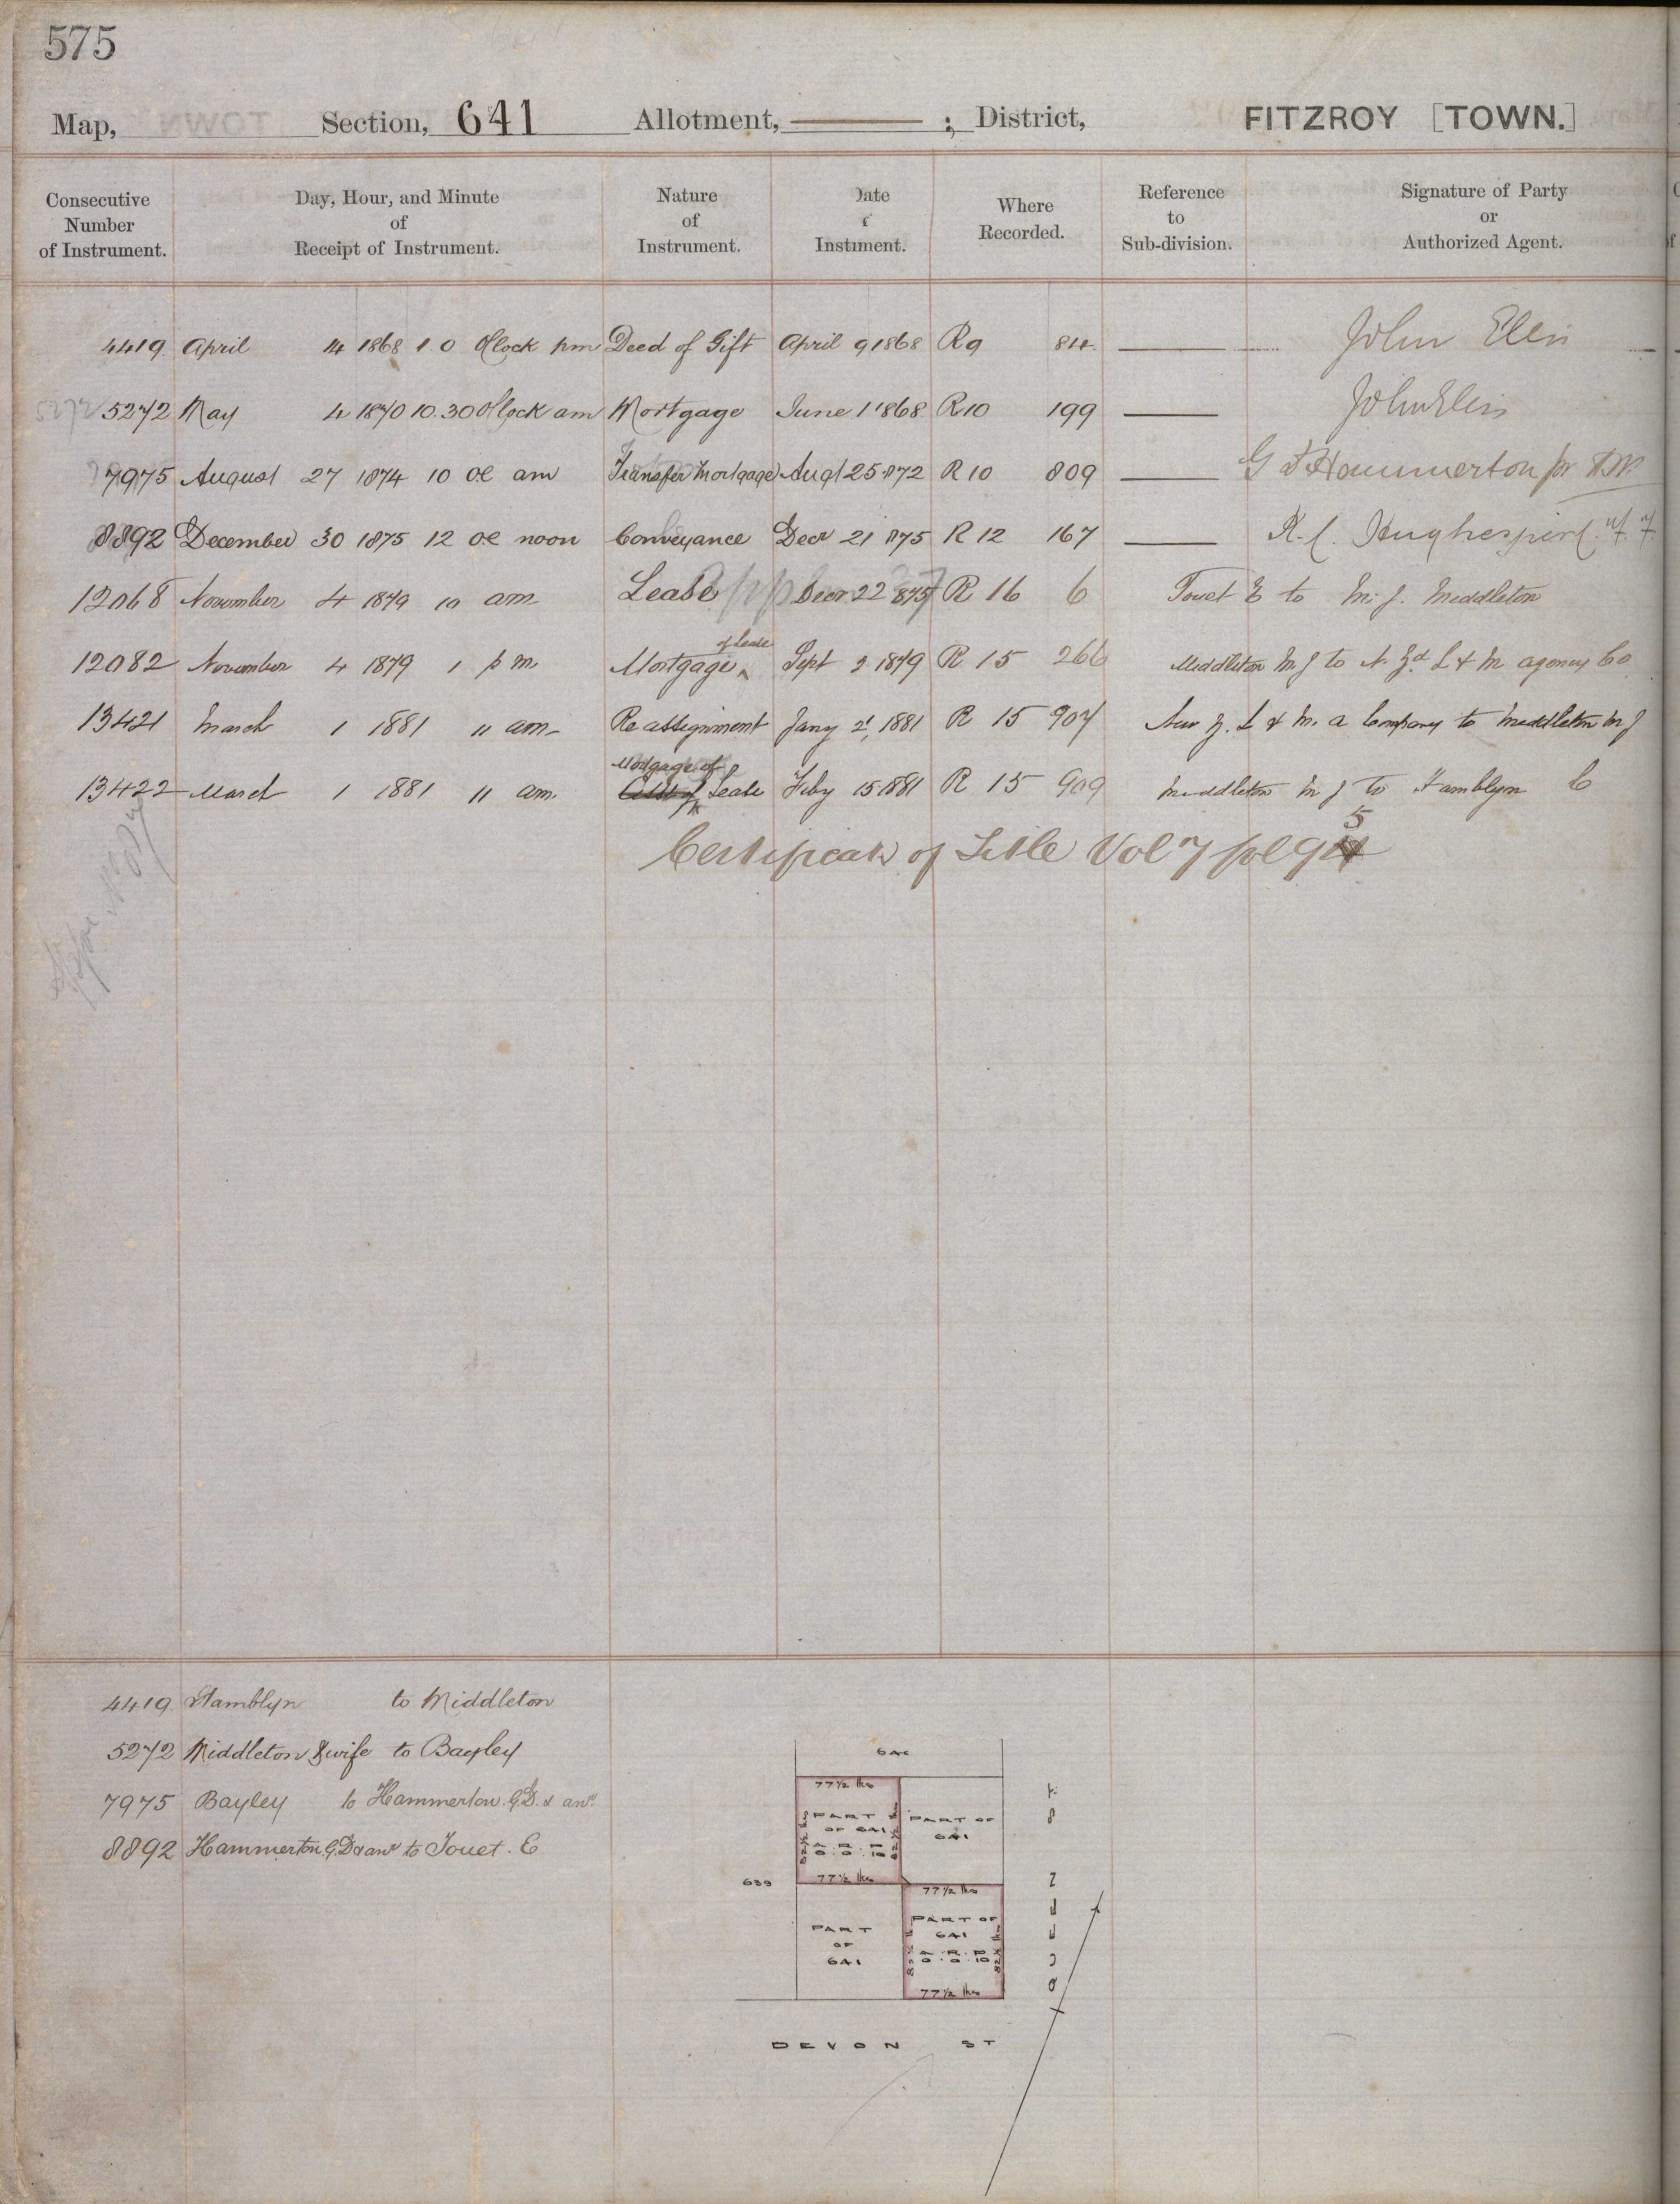 575
Map, Section, 641 Allotment, ; District, FITZROY [TOWN.]
Consecutive Number of Instrument.
Day, Hour, and Minute of Receipt of Instrument.
Nature of Instrument.
Date Instrument.
Where Recorded.
Reference to Sub-division.
Signature of Party or Authorized Agent.
4419 April 14 1868 1.0 O'Clock pm Deed of Gift April 9 1868 R9 84 John Ellis
5272 5272 May 4 1870 10.30 O'Clock am Mortgage June 1 1868 R10 199 John Ellis
7975 August 27 1874 10 OC am Transfer Mortgage Augt 25 1872 R 10 809 Hammerton for
8892 December 30 1875 12 OC noon Conveyance Decr 21 1875 R 12 167 R. C. Hughes
12068 November 4 1879 10 am Lease Decr 22 1875 R 16 6 Touet E to M. J. Middleton
12082 November 4 1879 1 pm Mortgage of Lease Sept 2 1879 R 15 266 Middleton M J to N. Zd. L & M agency Co.
13421 March 1 1881 11 am Re assignment Jany 21 1881 R 15 907 New Z. L & M. A Company to Middleton M J
13422 March 1 1881 11 am Mortgage of Lease Feby 15 1881 R 15 909 Middleton M J to Hamblyn C
Certificate of Title Vol 7 fol 95
4419 Hamblyn to Middleton
5272 Middleton & wife to Bayley
7975 Bayley to Hammerton. G.D. & anr.
8892 Hammerton. G.D & anr to Touet. E
640
77½ lks
PART OF 641
A R P
0 0 10
82½ lks
82½ lks
77½ lks
PART OF 641
639
77½ lks
PART OF 641
PART OF 641
A R P
0 0 10
82½ lks
82½ lks
77½ lks
DEVON ST